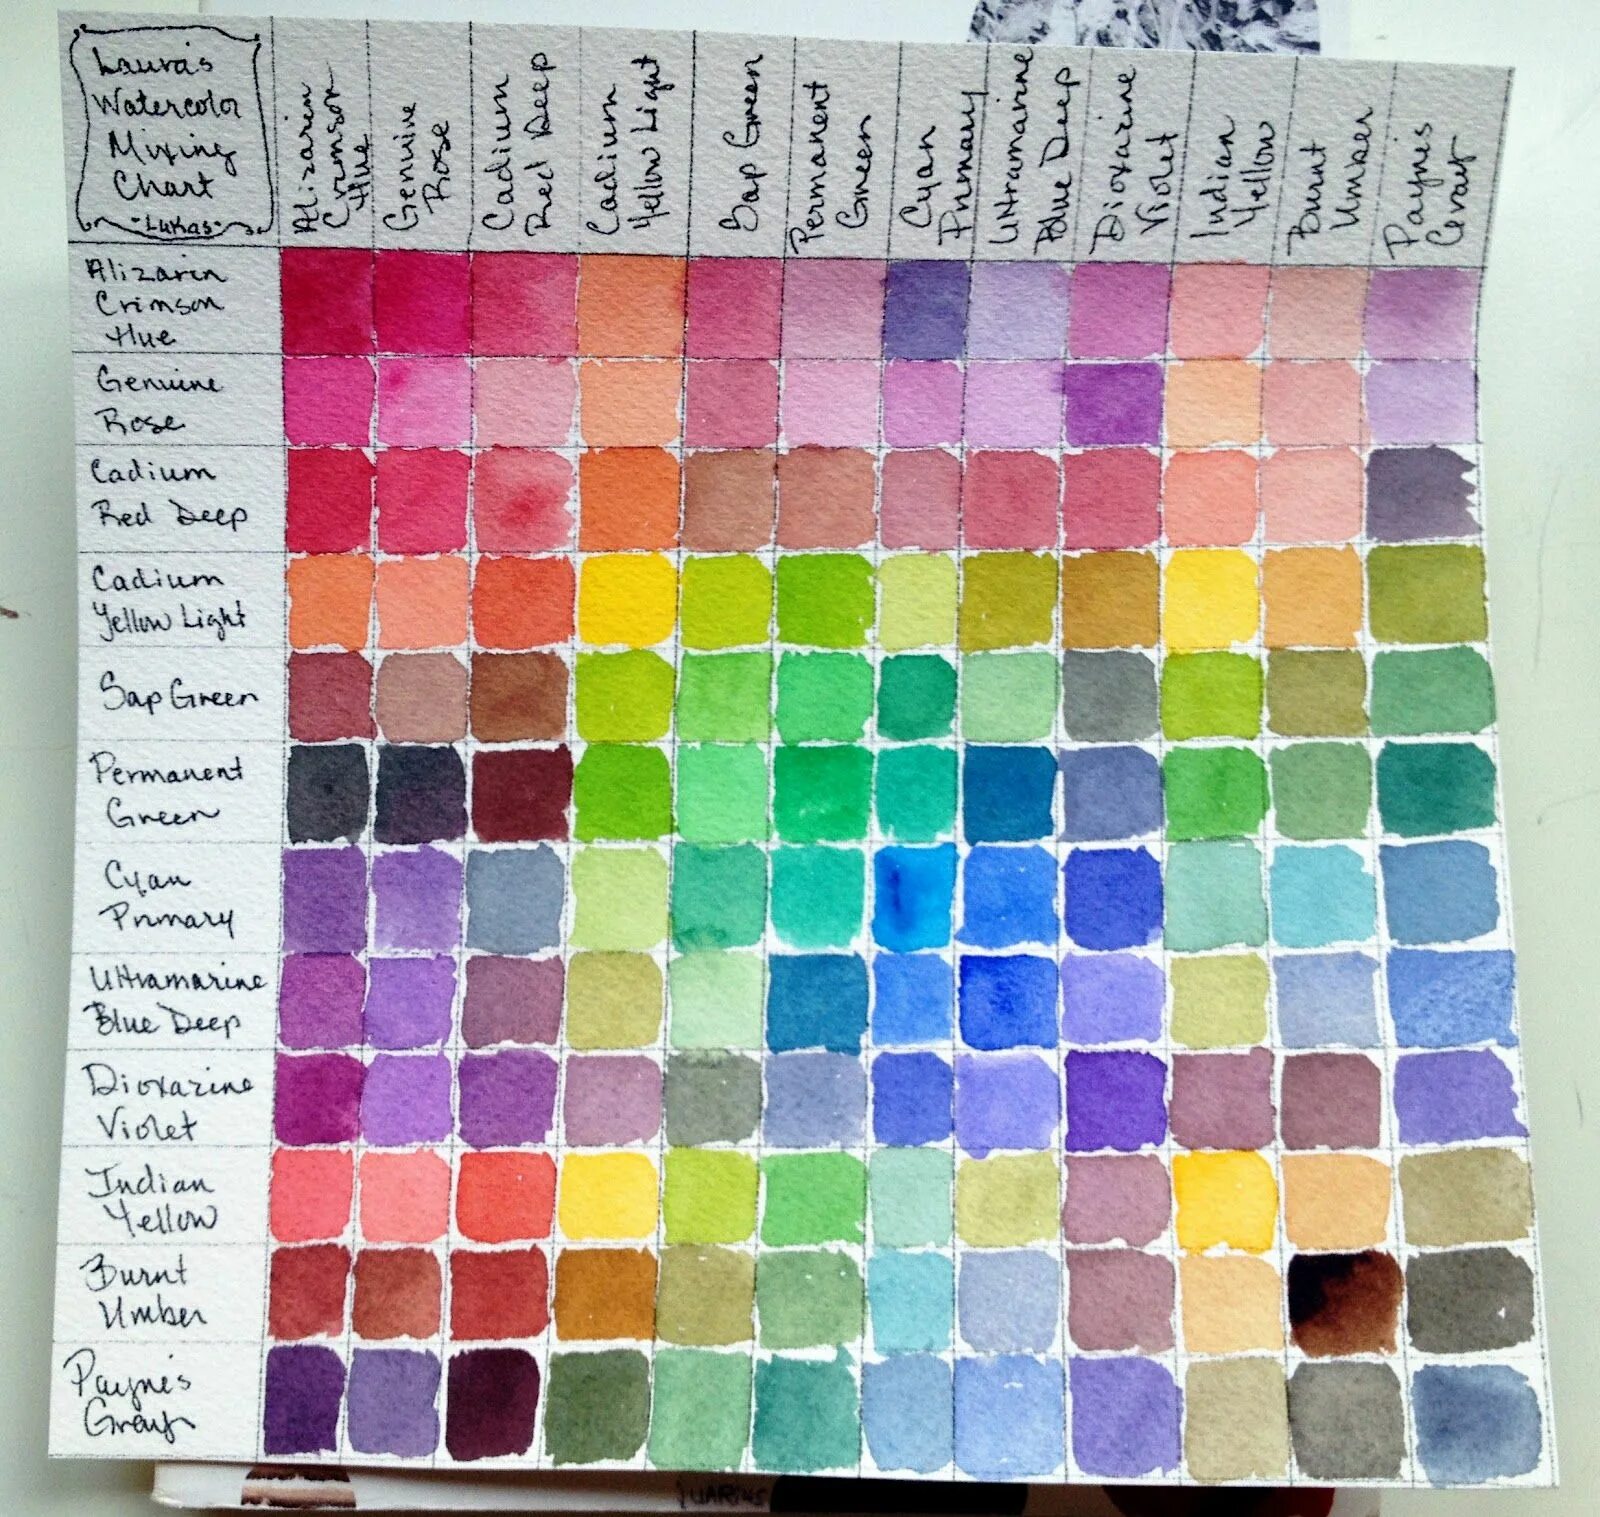 Laura's
Watercolor
Mixing
Chart
-Lukas-
Alizarin
Crimson
Hue
Genuine
Rose
Cadium
Red Deep
Cadium
Yellow Light
Sap Green
Permanent
Green
Cyan
Primary
Ultramarine
Blue Deep
Dioxazine
Violet
Indian
Yellow
Burnt
Umber
Payne's
Gray
Alizarin
Crimson
Hue
Genuine
Rose
Cadium
Red Deep
Cadium
Yellow Light
Sap Green
Permanent
Green
Cyan
Primary
Ultramarine
Blue Deep
Dioxazine
Violet
Indian
Yellow
Burnt
Umber
Payne's
Gray